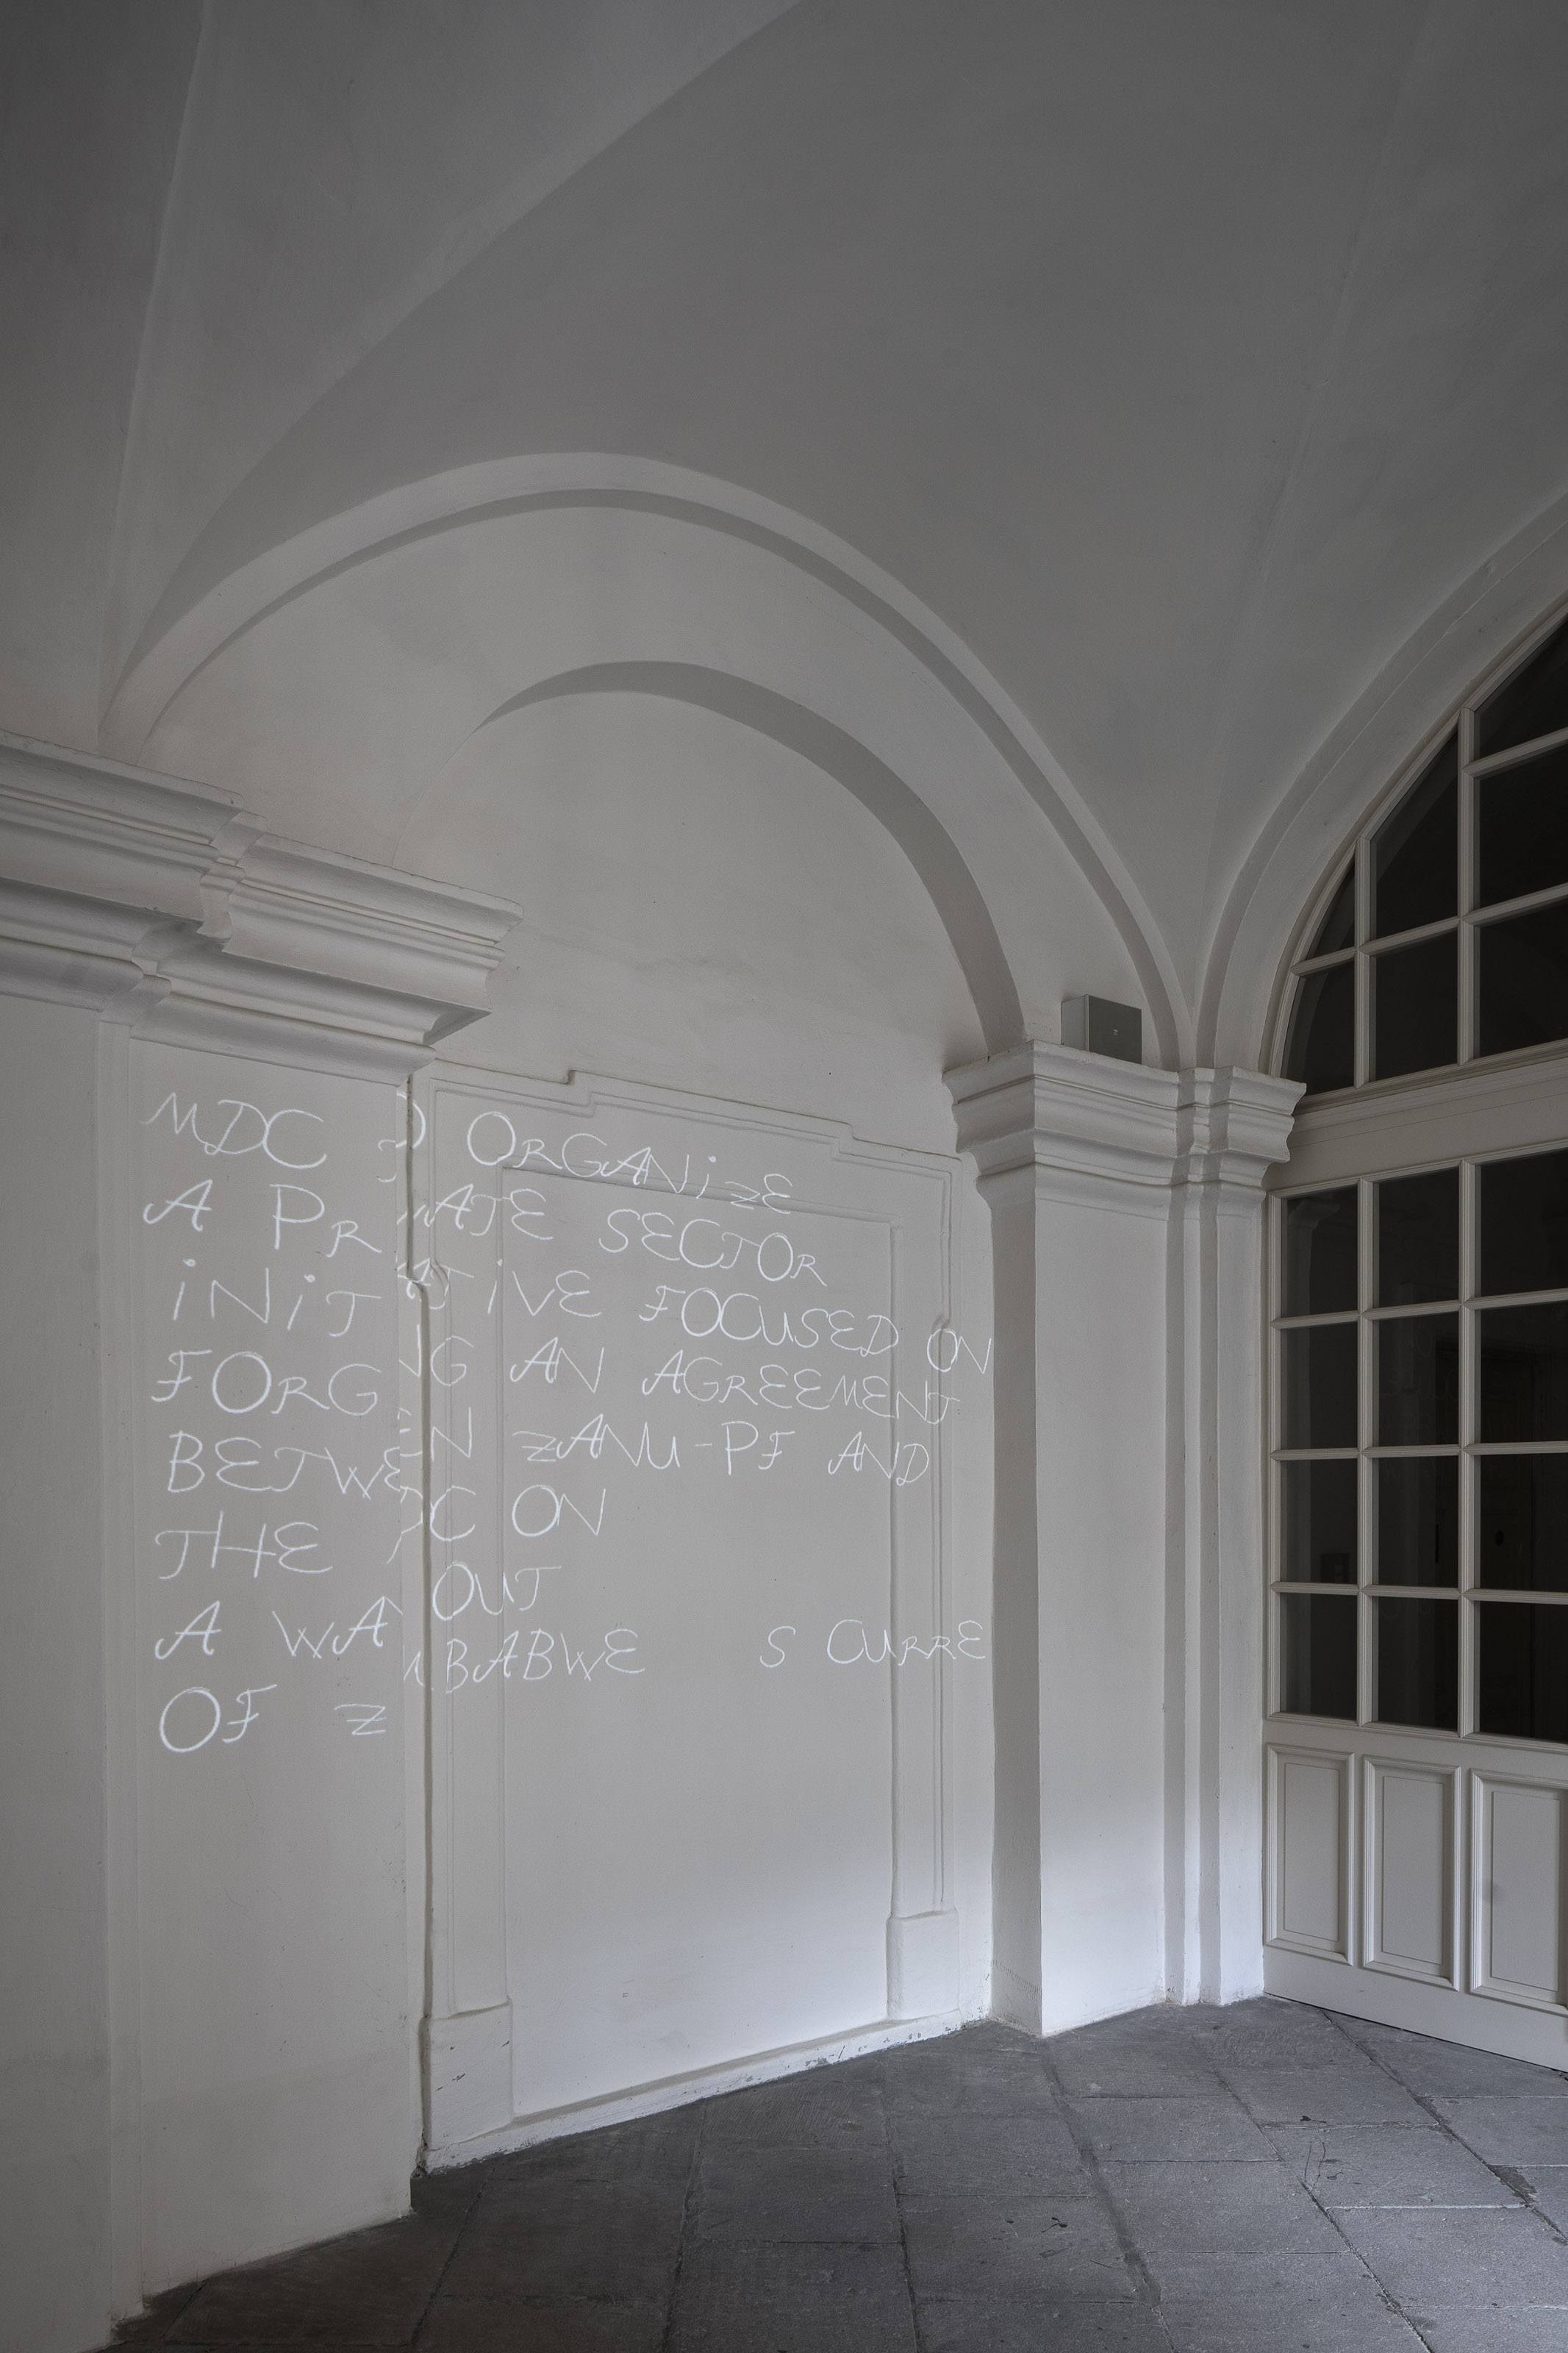 MDC TO ORGANiZE
A PRiVATE SECTOR
iNiTiATiVE FOCUSED ON
FORGiNG AN AGREEMENT
BETWEEN ZANU-PF AND
THE MDC ON
A WAY OUT
OF ZiMBABWE S CURRE